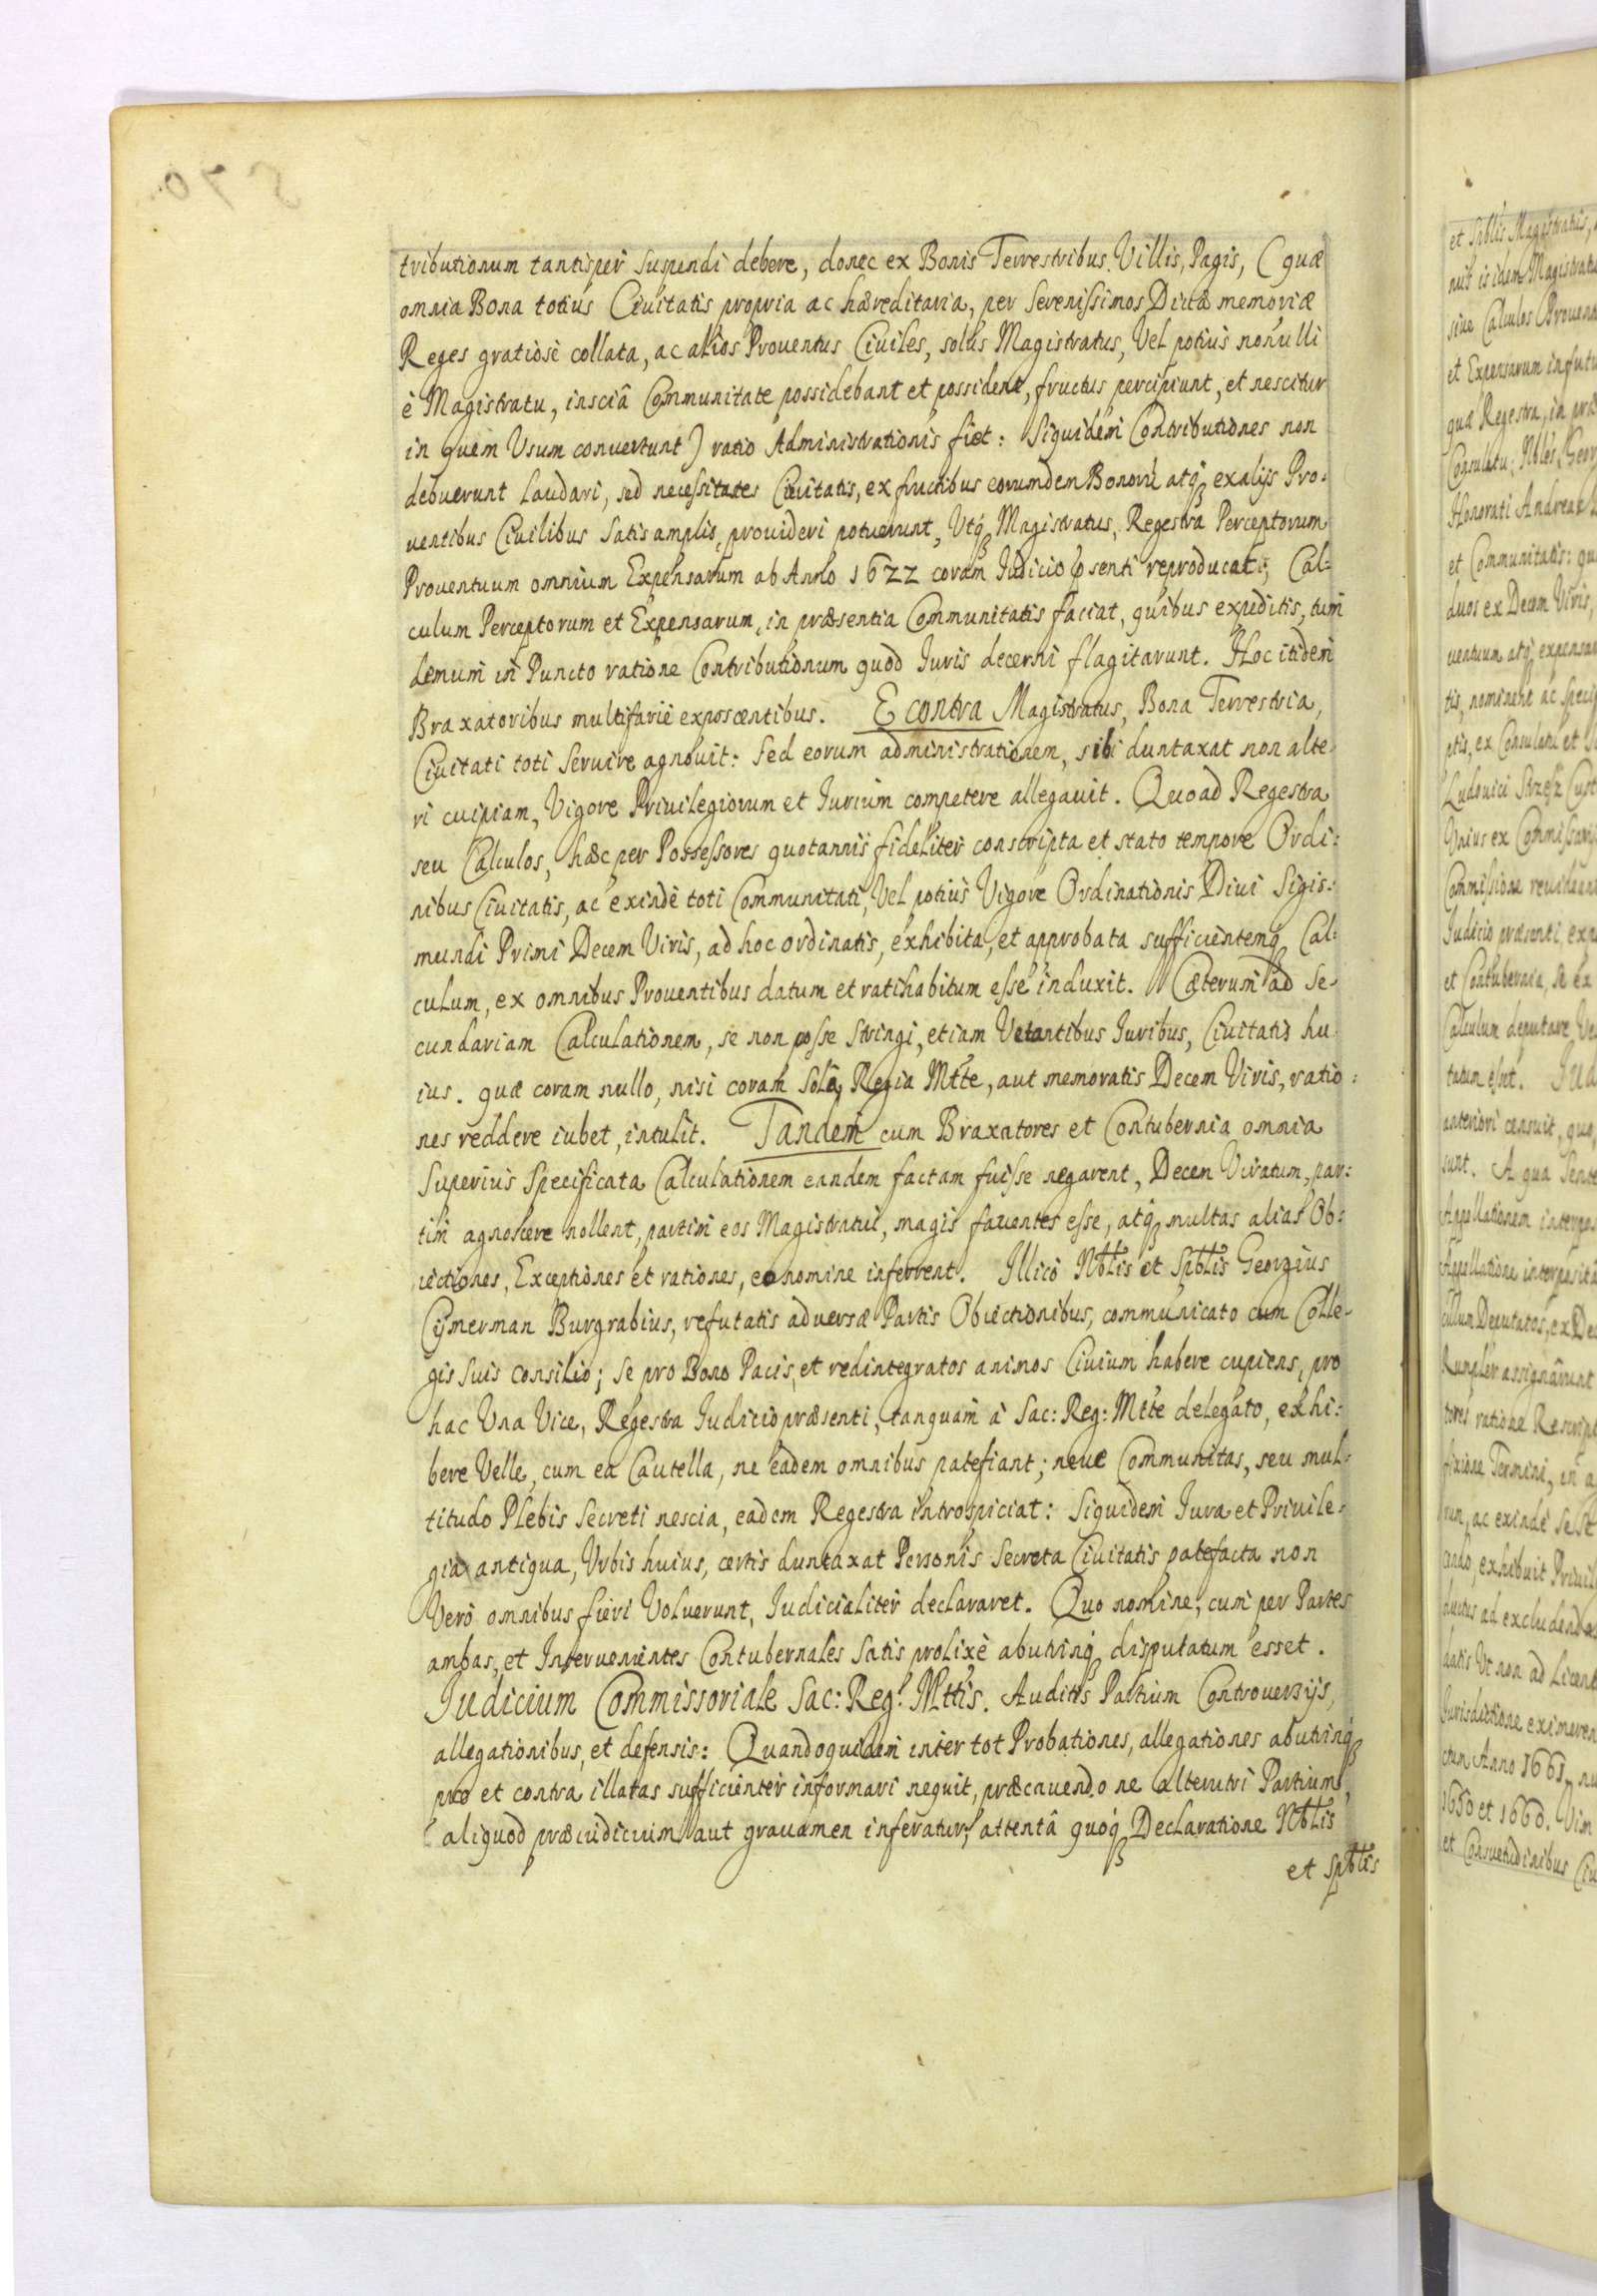 tributionum tantisper suspendi debere, donec ex Bonis Terrestribus, Villis, Pagis, (quæ
omnia Bona totius Ciuitatis propria ac hæreditaria, per Serenissimos Diuæ memoriæ
Reges gratiosè collata, ac alios Prouentus Ciuiles, solus Magistratus, Vel potius nonulli
è Magistratu, insciâ Communitate possidebant et possident, fructus percipiunt, et nescitur
in quem Vsum conuertunt) ratio Administrationis fiet: Siquidem Contributiones non
debuerunt Laudari, sed necessitates Ciuitatis, ex fructibus eorumdem Bonorũ atq́ʒ ex alijs Pro:
uentibus Ciuilibus Satis amplis, prouideri potuerunt, Vtq́ʒ Magistratus, Regestra Perceptorum
Prouentuum omnium Expensarum ab Anno 1622 coram Iudicio p̃senti reproducat; Cal:
culum Perceptorum et Expensarum, in præsentia Communitatis faciat, quibus expeditis, tum
demum in Puncto ratione Contributionum quod Iuris decerni flagitarunt. Hoc itidem
Braxatoribus multifariè exposcentibus. E contra Magistratus, Bona Terrestria,
Ciuitati toti Seruire agnouit: Sed eorum administrationem, sibi duntaxat non alte
ri cuipiam, Vigore Priuilegiorum et Iurium competere allegauit. Quoad Regestra
seu Calculos, hæc per Possessores quotannis fideliter conscripta et stato tempore Ordi:
nibus Ciuitatis, ac exinde toti Communitati, Vel potius Vigore Ordinationis Diui Sigis:
mundi Primi Decem Viris, ad hoc ordinatis, exhibita, et approbata sufficientemq́ʒ Cal:
culum, ex omnibus Prouentibus datum et ratihabitum esse induxit. Cæterum ad Se:
cundariam Calculationem, se non posse stringi, etiam Vetantibus Iuribus, Ciuitatis hu
ius. quæ coram nullo, nisi coram Solâ Regia Mtte, aut memoratis Decem Viris, ratio:
nes reddere iubet, intulit. Tandem cum Braxatores et Contubernia omnia
Superius Specificata Calculationem eandem factam fuisse negarent, Decem Viratum, par:
tim agnoscere nollent, partim eos Magistratui, magis fauentes esse, atq́ʒ multas alias Ob:
iectiones, Exceptiones et rationes, eo nomine inferrent. Illico Nbtlis et Spbtlis Georgius
Cijmerman Burgrabius, refutatis aduersæ Partis Obiectionibus, communicato cum Colle:
gis Suis consilio; se pro Bono Pacis, et redintegratos animos Ciuium habere cupiens, pro
hac Vna Vice, Regestra Iudicio præsenti, tanquam à Sac: Reg: Mtte delegato, exhi:
bere Velle, cum ea Cautella, ne eadem omnibus patefiant; neue Communitas, seu mul:
titudo Plebis Secreti nescia, eadem Regestra introspiciat: Siquidem Iura et Priuile:
gia antiqua, Vrbis huius, certis duntaxat Personis Secreta Ciuitatis patefacta non
Verò omnibus fieri Voluerunt, Iudicialiter declararet. Quo nomine, cum per Partes
ambas, et Interuenientes Contubernales Satis prolixè abutrinq́ʒ disputatum esset.
Iudicium Commissoriale Sac: Reg: Mttis. Auditis Partium Controuersijs,
allegationibus, et defensis: Quandoquidem inter tot Probationes, allegationes abutrinq́ʒ
pro et contra illatas sufficienter informari nequit, præcauendo ne alterutri Partium,
aliquod præiudicium aut grauamen inferatur, attentâ quoq́ʒ Declaratione Nbtlis
et Spbtlis